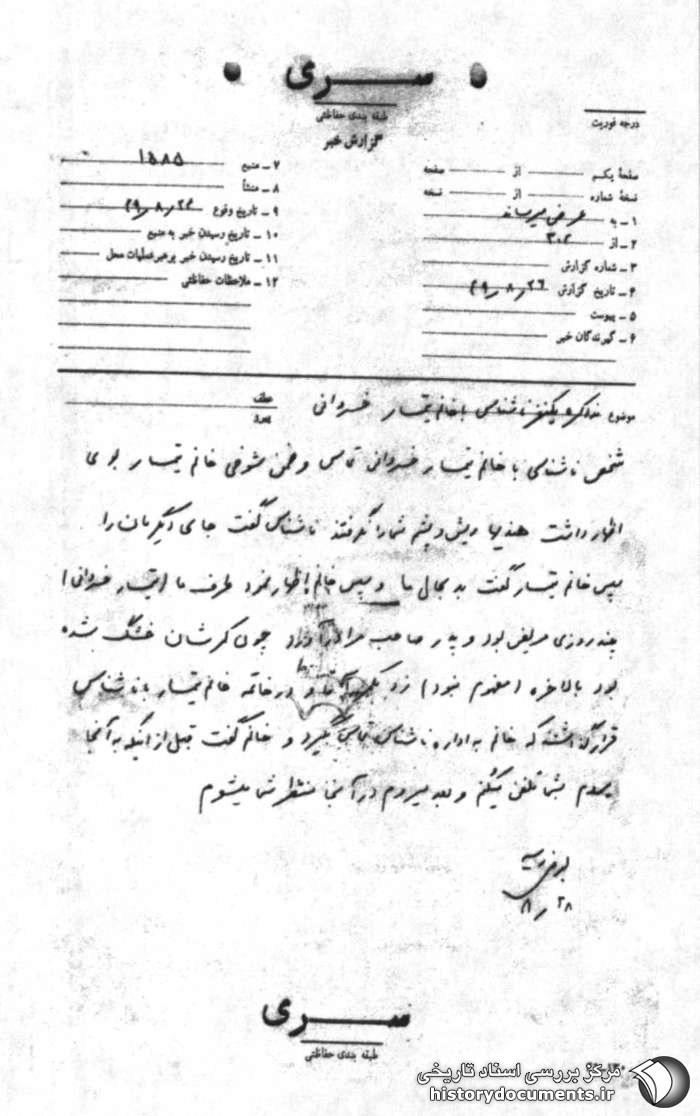 سری
طبقه بندی حفاظتی
گزارش خبر
درجه فوریت
صفحهٔ یکم از صفحه
نسخهٔ شماره از نسخه
۱ ـ به عرض میرساند
۲ ـ از ۳۰۲
۳ ـ شماره گزارش
۴ ـ تاریخ گزارش ۲۶ ر ۸ ر ۴۹
۵ ـ پیوست
۶ ـ گیرندگان خبر
۷ ـ منبع ۱۵۸۵
۸ ـ منشأ
۹ ـ تاریخ وقوع ر ۸ ر ۴۹
۱۰ ـ تاریخ رسیدن خبر به منبع
۱۱ ـ تاریخ رسیدن خبر برهبر عملیات محل
۱۲ ـ ملاحظات حفاظتی
موضوع مذاکره یکنفر ناشناس با خانم تیمسار خسروانی
عطف
شخص ناشناسی با خانم تیمسار خسروانی تماس و ضمن شوخی خانم تیمسار بوی
اظهار داشت هندیها ریش و پشم شما را گرفتند ناشناس گفت جای دیگرمان را
سپس خانم تیمسار گفت بد بحال ما و سپس خانم اظهار نمود طرف ما (تیمسار خسروانی)
چند روزی مریض بود و پدر صاحب مرا چون کمرشان خشک شده
بود بالاخره (مفهوم نبود) و در خاتمه خانم تیمسار با ناشناس
قرار گذاشتند که خانم به اداره ناشناس تماس بگیرد و خانم گفت قبل از اینکه به آنجا
برسم بشما تلفن میکنم و بعد میروم در آنجا منتظر شما میشوم
بعرض رسید
۲۸ ر ۸
سری
طبقه بندی حفاظتی
مرکز بررسی اسناد تاریخی
historydocuments.ir